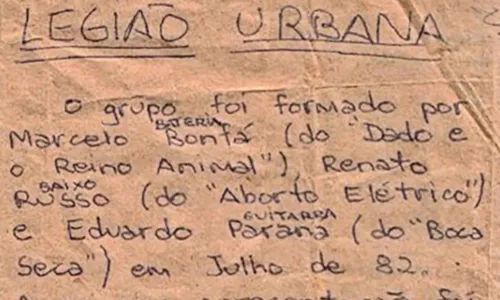 LEGIÃO URBANA
O grupo foi formado por
BATERIA
Marcelo Bonfá (do "Dado e
o Reino Animal"), Renato
BAIXO
RUSSO (do "Aborto Elétrico")
GUITARRA
e Eduardo Paraná (do "Boca
Seca") em Julho de 82.